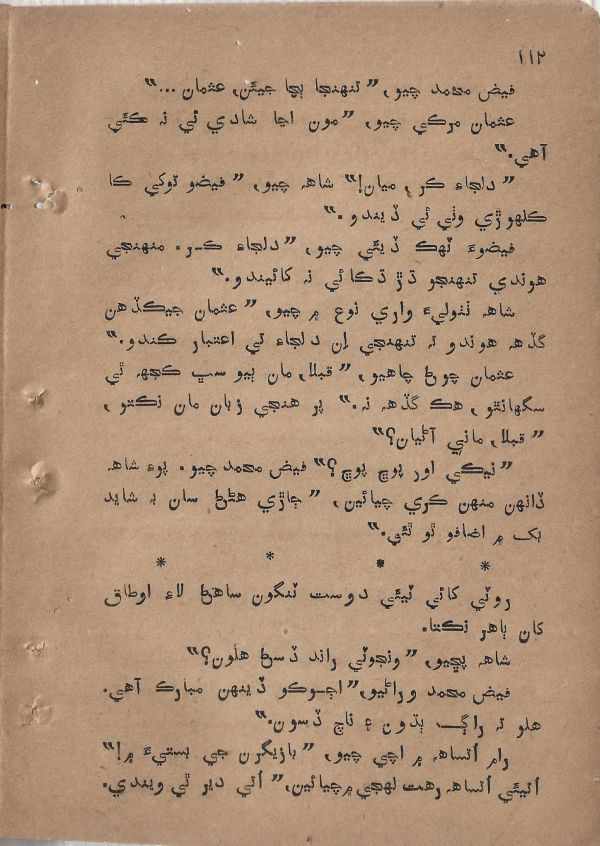 ١١٢
فيض محمد چيو، ”تنهنجا ٻچا جيئن، عثمان...“
عثمان مرڪي چيو، ”مون اڃا شادي ئي نہ ڪئي
آهي.“
”دلجاءِ ڪر، ميان!“ شاهہ چيو، ”فيضو توکي ڪا
ڪلهوڙي وٺي ئي ڏيندو.“
فيضوءَ ٽهڪ ڏيئي چيو، ”دلجاءِ ڪر. منهنجي
هوندي تنهنجو ڌڙ ڌڪا ئي نہ کائيندو.“
شاهہ ٺٺوليءَ واري نوع ۾ چيو، ”عثمان جيڪڏهن
گڏهہ هوندو تہ تنهنجي اِن دلجاءِ تي اعتبار ڪندو.“
عثمان چوڻ چاهيو، ”قبلا، مان ٻيو سڀ ڪجهہ ٿي
سگهانٿو، هڪ گڏهہ نہ.“ پر هنجي زبان مان نڪتو،
”قبلا، ماني آڻيان؟“
”نيڪي اور پوڇ پوڇ؟“ فيض محمد چيو. پوءِ شاهہ
ڏانهن منهن ڪري چيائين، ”ڄاڙي هڻڻ سان بہ شايد
بک ۾ اضافو ٿو ٿئي.“
* * * *
روٽي کائي ٽيئي دوست ٽنگون ساهڻ لاءِ اوطاق
کان ٻاهر نڪتا.
شاهہ پڇيو، ”ونجوٽي راند ڏسڻ هلون؟“
فيض محمد وراڻيو، ”اڄوڪو ڏينهن مبارڪ آهي.
هلو تہ راڳ ٻڌون ۽ ناچ ڏسون.“
رام اُتساهہ ۾ اچي چيو، ”بازيگرن جي بستيءَ ۾!“
اُتيئي اُتساهہ رهت لهجي ۾ چيائين، ”اُتي دير ٿي ويندي.